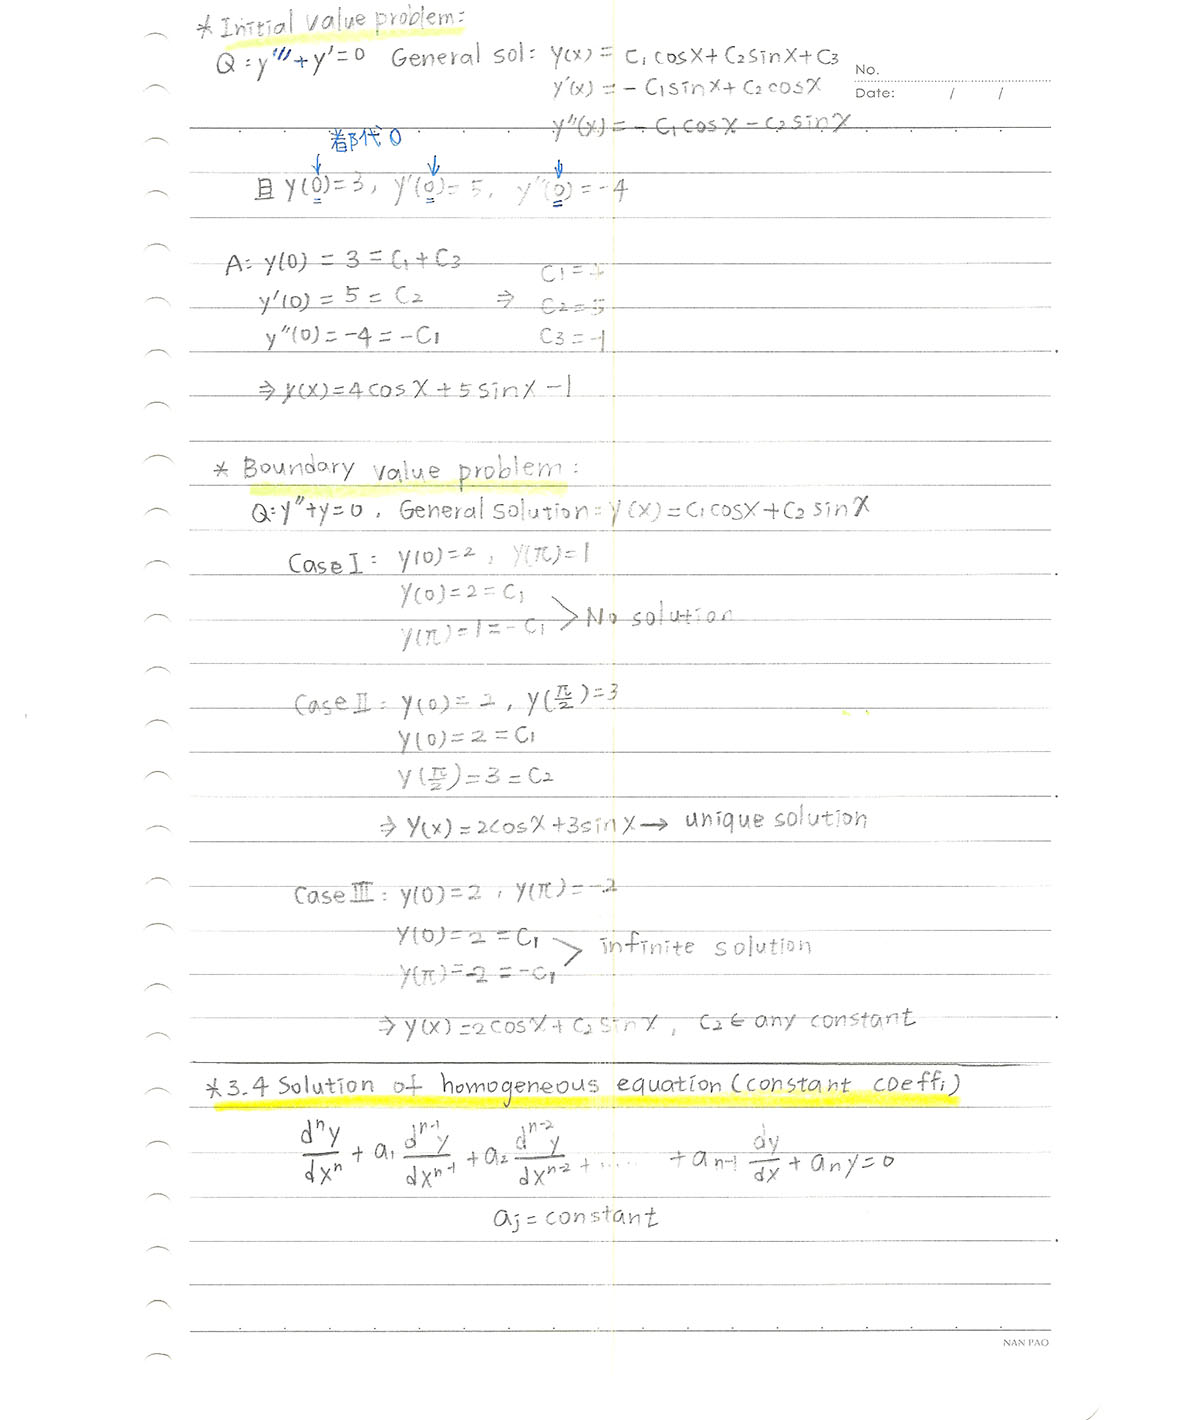 * Initial value problem:
Q: y'''+y'=0 General sol: y(x) = C₁cosx+C₂sinx+C₃
No.
y'(x) = -C₁sinx+C₂cosx
Date: / /
y''(x) = -C₁cosx-C₂sinx
都代0
且 y(0)=3, y'(0)=5, y''(0)=-4
A: y(0) = 3 = C₁+C₃
C₁=
y'(0) = 5 = C₂ ⇒ C₂=5
y''(0) = -4 = -C₁ C₃=-1
⇒ y(x)=4cosx+5sinx-1
* Boundary value problem:
Q: y''+y=0, General solution: y(x)=C₁cosx+C₂sinx
Case I: y(0)=2, y(π)=1
y(0)=2=C₁
y(π)=1=-C₁ > No solution
Case II: y(0)=2, y(π/2)=3
y(0)=2=C₁
y(π/2)=3=C₂
⇒ y(x)=2cosx+3sinx → unique solution
Case III: y(0)=2, y(π)=-2
y(0)=2=C₁ > infinite solution
y(π)=-2=-C₁
⇒ y(x)=2cosx+C₂sinx, C₂∈any constant
*3.4 Solution of homogeneous equation (constant coeffi)
dⁿy/dxⁿ + a₁ dⁿ⁻¹y/dxⁿ⁻¹ + a₂ dⁿ⁻²y/dxⁿ⁻² + ...... + aₙ₋₁ dy/dx + aₙy=0
aⱼ = constant
NAN PAO